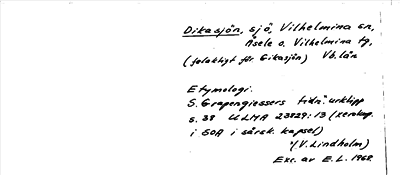 Dikasjön, sjö, Vilhelmina sn,
Åsele o. Vilhelmina tg,
(felaktigt för Gikasjön) Vb. län
Etymologi.
S. Grapengiessers tidn.urklipp
s. 38 ULMA 23829:13 (xerokop.
i SOA i särsk. kapsel)
(V. Lindholm)
Exc. av E. L. 1968.